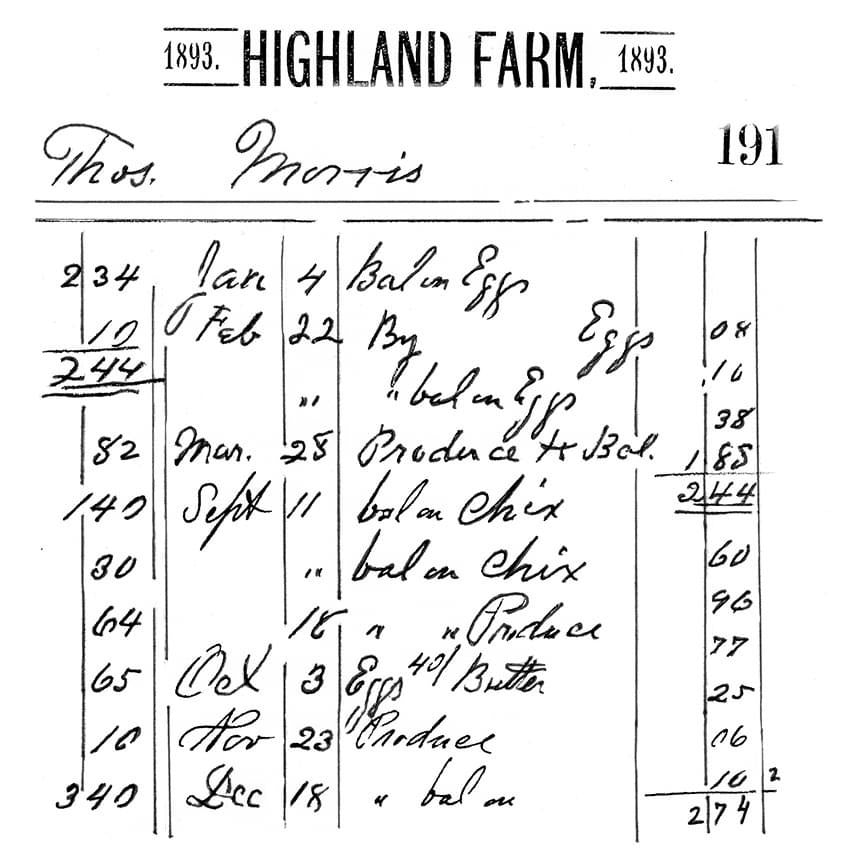 1893. HIGHLAND FARM, 1893.
Thos. Morris 191
2 34 Jan 4 Bal on Eggs
10 Feb 22 By Eggs 08
2 44 .10
" " " bal on Eggs 38
82 Mar. 28 Produce & Bal. 1 88
1 40 Sept 11 bal on Chix 2 44
30 " " bal on Chix 60
64 18 " " Produce 96
77
65 Oct 3 Eggs 40/ Butter 25
10 Nov 23 " Produce 06
10 2
3 40 Dec 18 " bal on 2 74